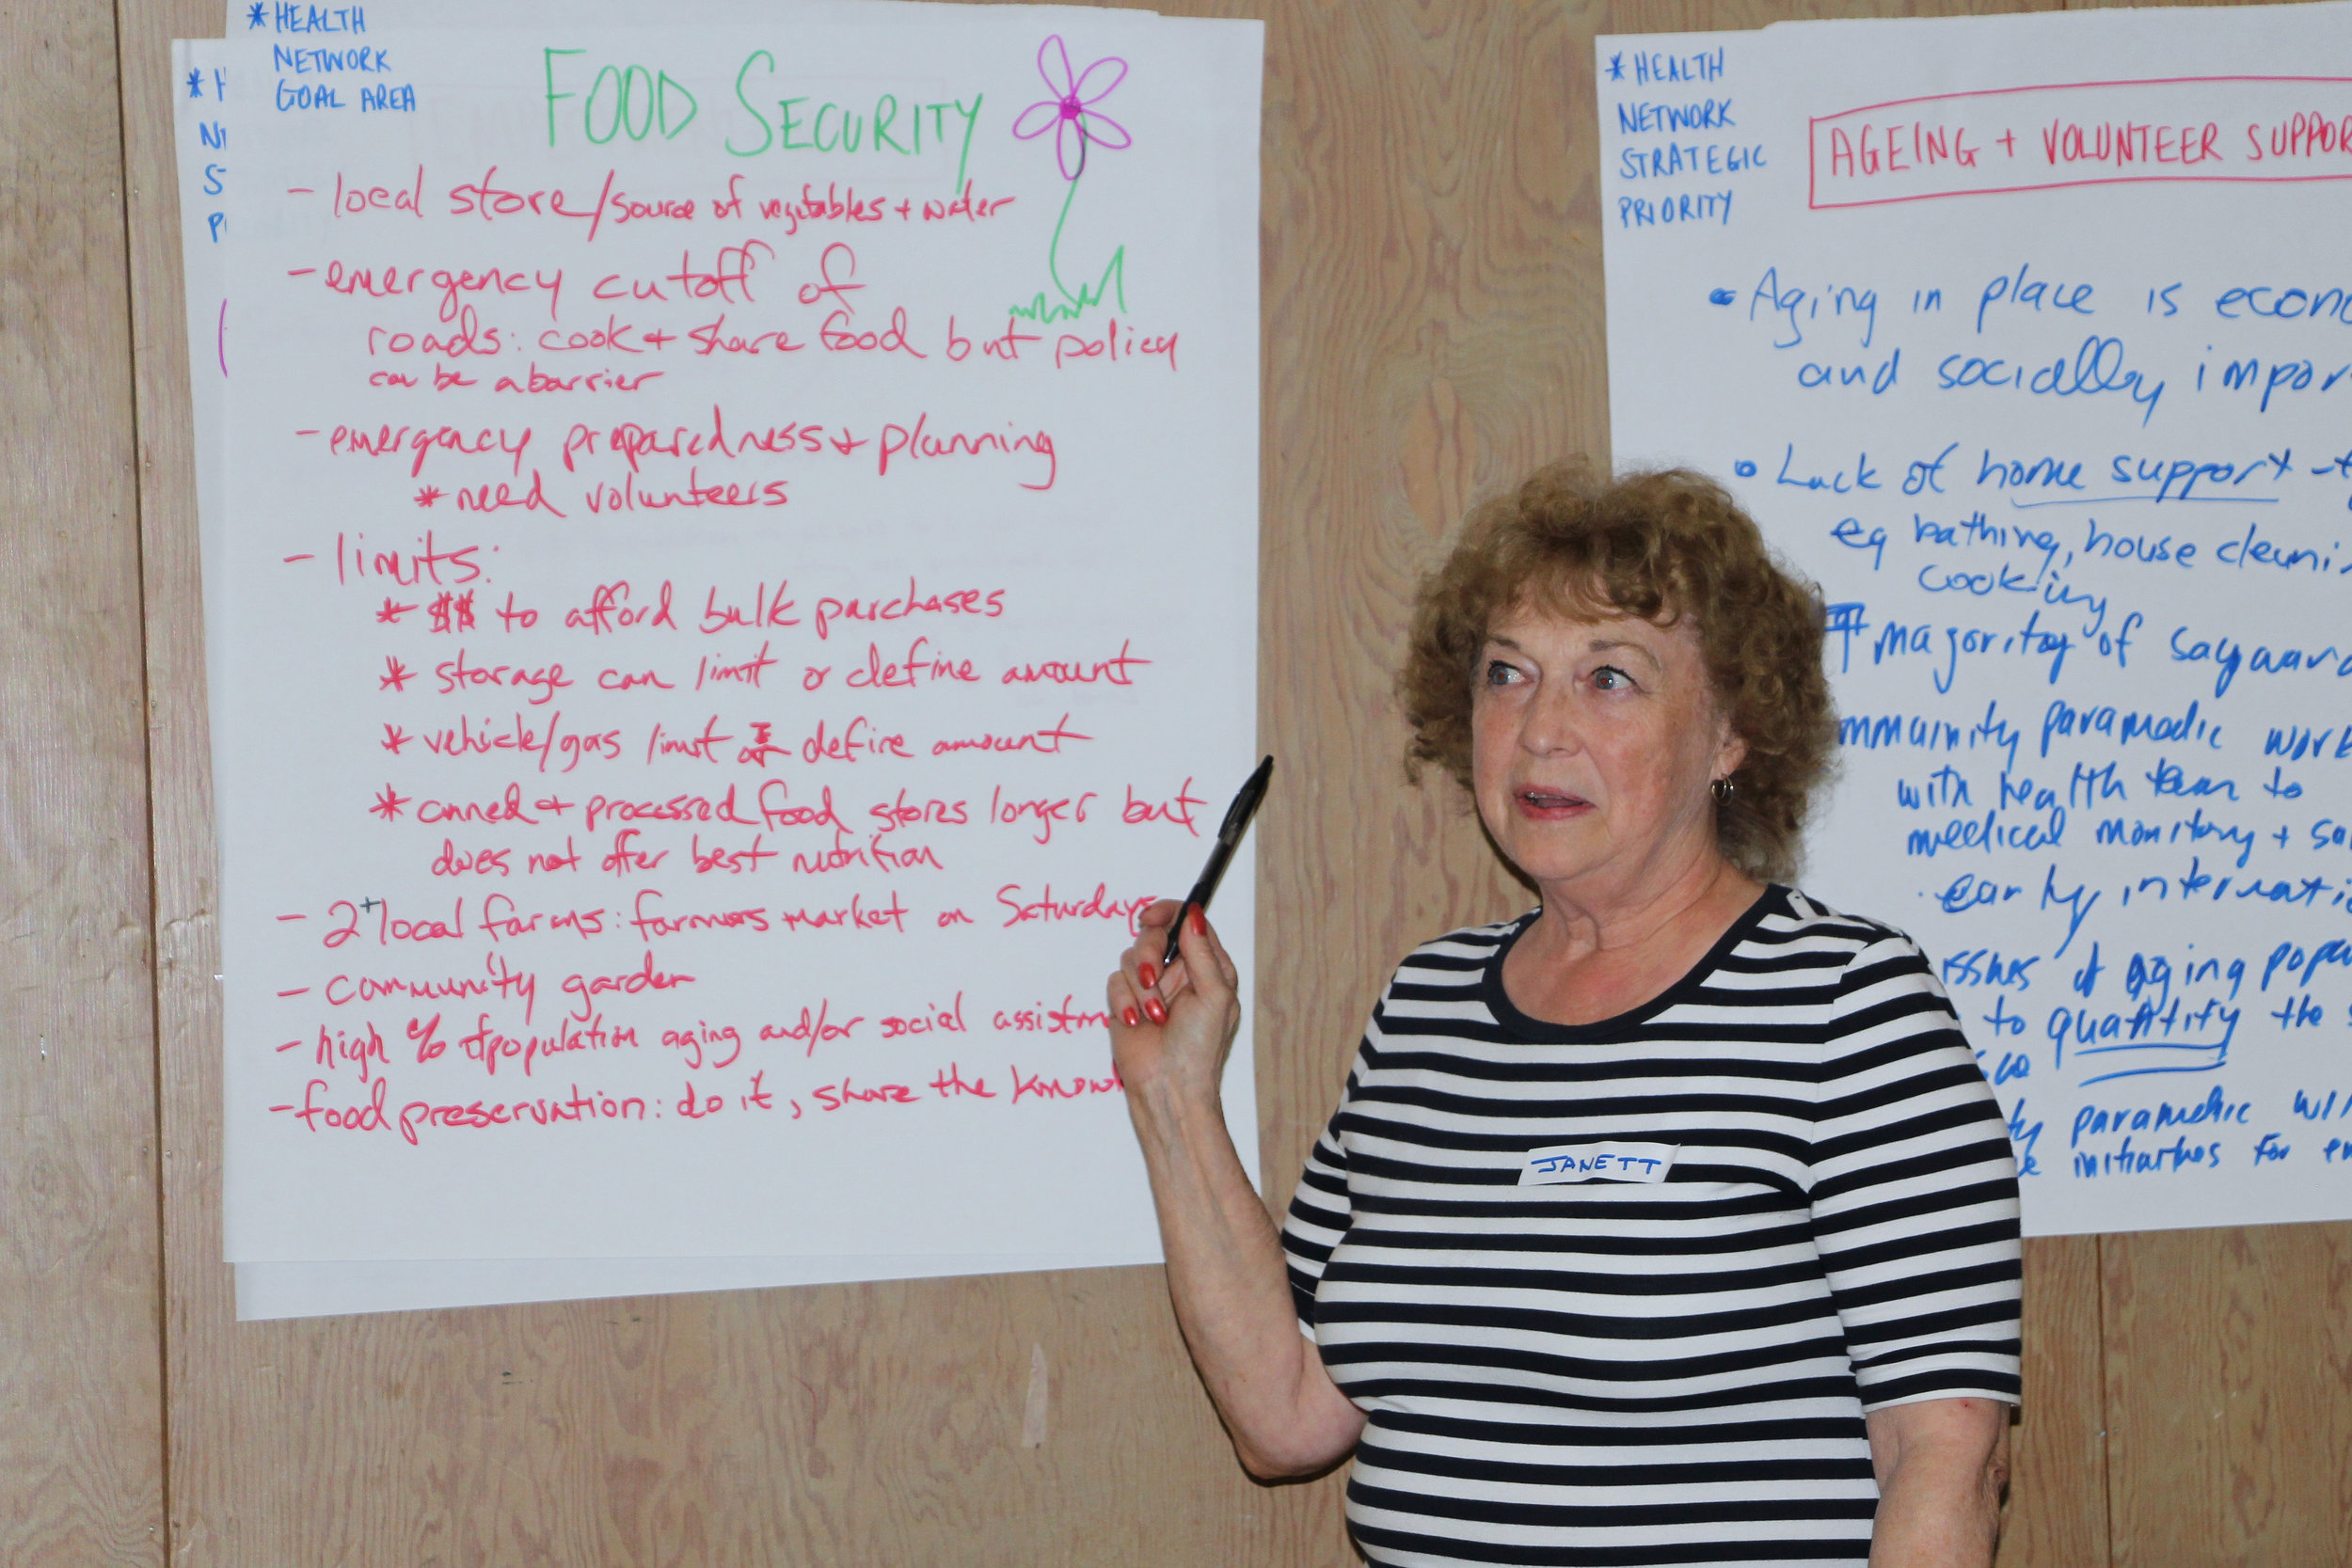 * HEALTH
NETWORK
GOAL AREA
FOOD SECURITY
- local store/source of vegetables + water
- emergency cutoff of
roads: cook + share food but policy
can be a barrier
- emergency preparedness + planning
* need volunteers
- limits:
* $$ to afford bulk purchases
* storage can limit or define amount
* vehicle/gas limit or define amount
* canned + processed food stores longer but
does not offer best nutrition
- 2+ local farms: farmers market on Saturdays
- community garden
- high % of population aging and/or social
- food preservation: do it, share the
* HEALTH
NETWORK
STRATEGIC
PRIORITY
AGEING + VOLUNTEER
• Aging in place is
and socially
• Lack of home support -
eg bathing, house
cooking
majority of
paramedic
with health team to
medical monitoring +
early
issues of aging
to quantify the
paramedic
initiatives for
JANETT